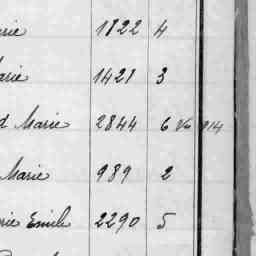 rie 1822 4
arie 1421 3
d Marie 2844 6 914
Marie 989 2
rie Emile 2290 5